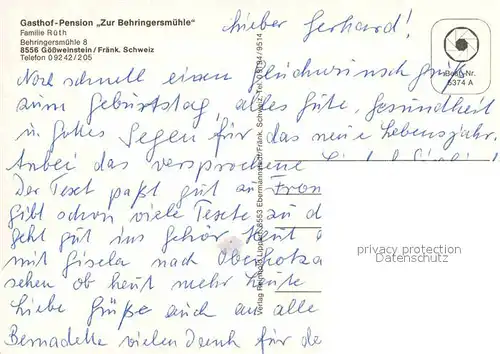 Gasthof-Pension „Zur Behringersmühle“
Familie Rüth
Behringersmühle 8
8556 Gößweinstein/Fränk. Schweiz
Telefon 09242/205
Lieber Gerhard!
Noch schnell einen Glückwunschgruß
zum Geburtstag, alles Gute, Gesundheit
u. Gottes Segen für das neue Lebensjahr.
Anbei das versprochene
Der Text paßt gut zu Fron
gibt schon viele Texte zu d
geht gut ins Gehör. Heut
mit Gisela nach
sehen ob heut mehr Leute
Liebe Grüße auch an alle
Bernadette vielen Dank für de
Best.-Nr.
5374 A
Verlag 8553 Ebermannstadt/Fränk. Schweiz, Tel. 09194/9514
privacy protection
ansichtskarten-center.de